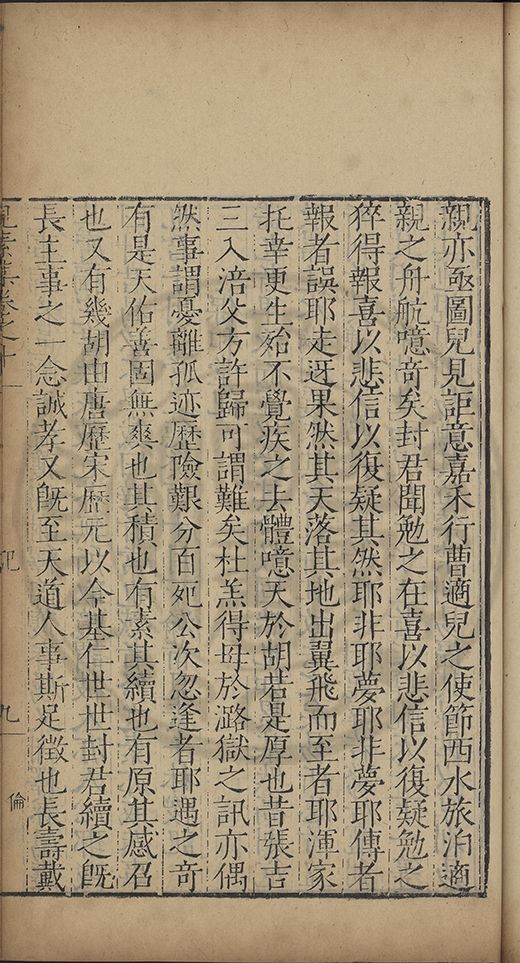 親亦亟圖兒見詎意嘉禾行曹適兒之使節西水旅泊適
親之舟航噫奇矣封君聞勉之在喜以悲信以復疑勉之
猝得報喜以悲信以復疑其然耶非耶夢耶非夢耶傳者
報者誤耶走迓果然其天落其地出翼飛而至者耶渾家
托幸更生殆不覺疾之去體噫天於胡若是厚也昔張吉
三入涪父方許歸可謂難矣杜羔得母於潞獄之訊亦偶
然事謂憂離孤迹歷險艱分百死公次忽逢者耶遇之奇
有是天佑善固無爽也其積也有素其續也有原其感召
也又有幾胡由唐歷宋歷元以今基仁世世封君續之既
長主事之一念誠孝又既至天道人事斯足徵也長壽戴
見素集卷之十
記
九
倫